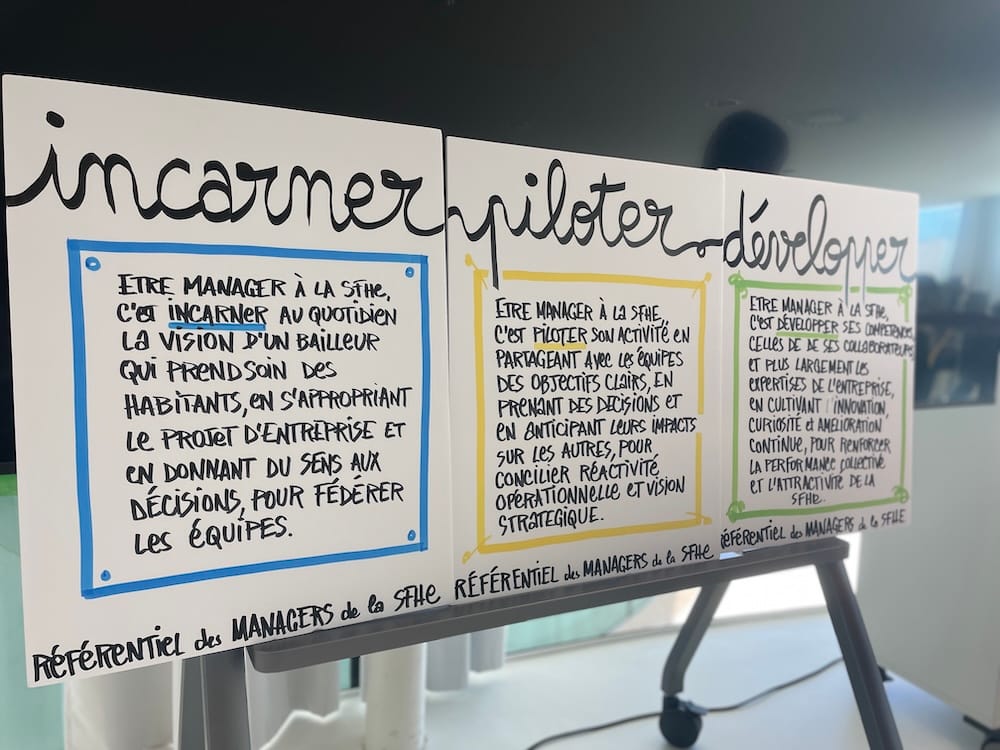 incarner
ETRE MANAGER À LA SFHE,
C'EST INCARNER AU QUOTIDIEN
LA VISION D'UN BAILLEUR
QUI PREND SOIN DES
HABITANTS, EN S'APPROPRIANT
LE PROJET D'ENTREPRISE ET
EN DONNANT DU SENS AUX
DÉCISIONS, POUR FÉDÉRER
LES ÉQUIPES.
RÉFÉRENTIEL des MANAGERS de la SFHE
piloter
ETRE MANAGER À LA SFHE,
C'EST PILOTER SON ACTIVITÉ EN
PARTAGEANT AVEC LES ÉQUIPES
DES OBJECTIFS CLAIRS, EN
PRENANT DES DECISIONS ET
EN ANTICIPANT LEURS IMPACTS
SUR LES AUTRES, POUR
CONCILIER RÉACTIVITÉ
OPÉRATIONNELLE ET VISION
STRATEGIQUE.
RÉFÉRENTIEL des MANAGERS de la SFHE
développer
ETRE MANAGER À LA SFHE,
C'EST DÉVELOPPER SES COMPETENCES,
CELLES DE DE SES COLLABORATEURS
ET PLUS LARGEMENT LES
EXPERTISES DE L'ENTREPRISE,
EN CULTIVANT L'INNOVATION,
CURIOSITÉ ET AMELIORATION
CONTINUE, POUR RENFORCER
LA PERFORMANCE COLLECTIVE
ET L'ATTRACTIVITE DE LA
SFHE.
RÉFÉRENTIEL des MANAGERS de la SFHE